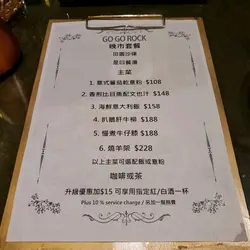 GO GO ROCK
晚市套餐
田園沙律
是日餐湯
主菜
1. 意式蕃茄乾意粉 $108
2. 香煎比目魚配文也汁 $148
3. 海鮮意大利飯 $158
4. 扒鵝肝牛柳 $188
5. 慢煮牛仔膝 $188
6. 燒羊架 $228
以上主菜可選配飯或意粉
咖啡或茶
升級優惠加$15 可享用指定紅/白酒一杯
Plus 10 % service charge / 另加一服務費